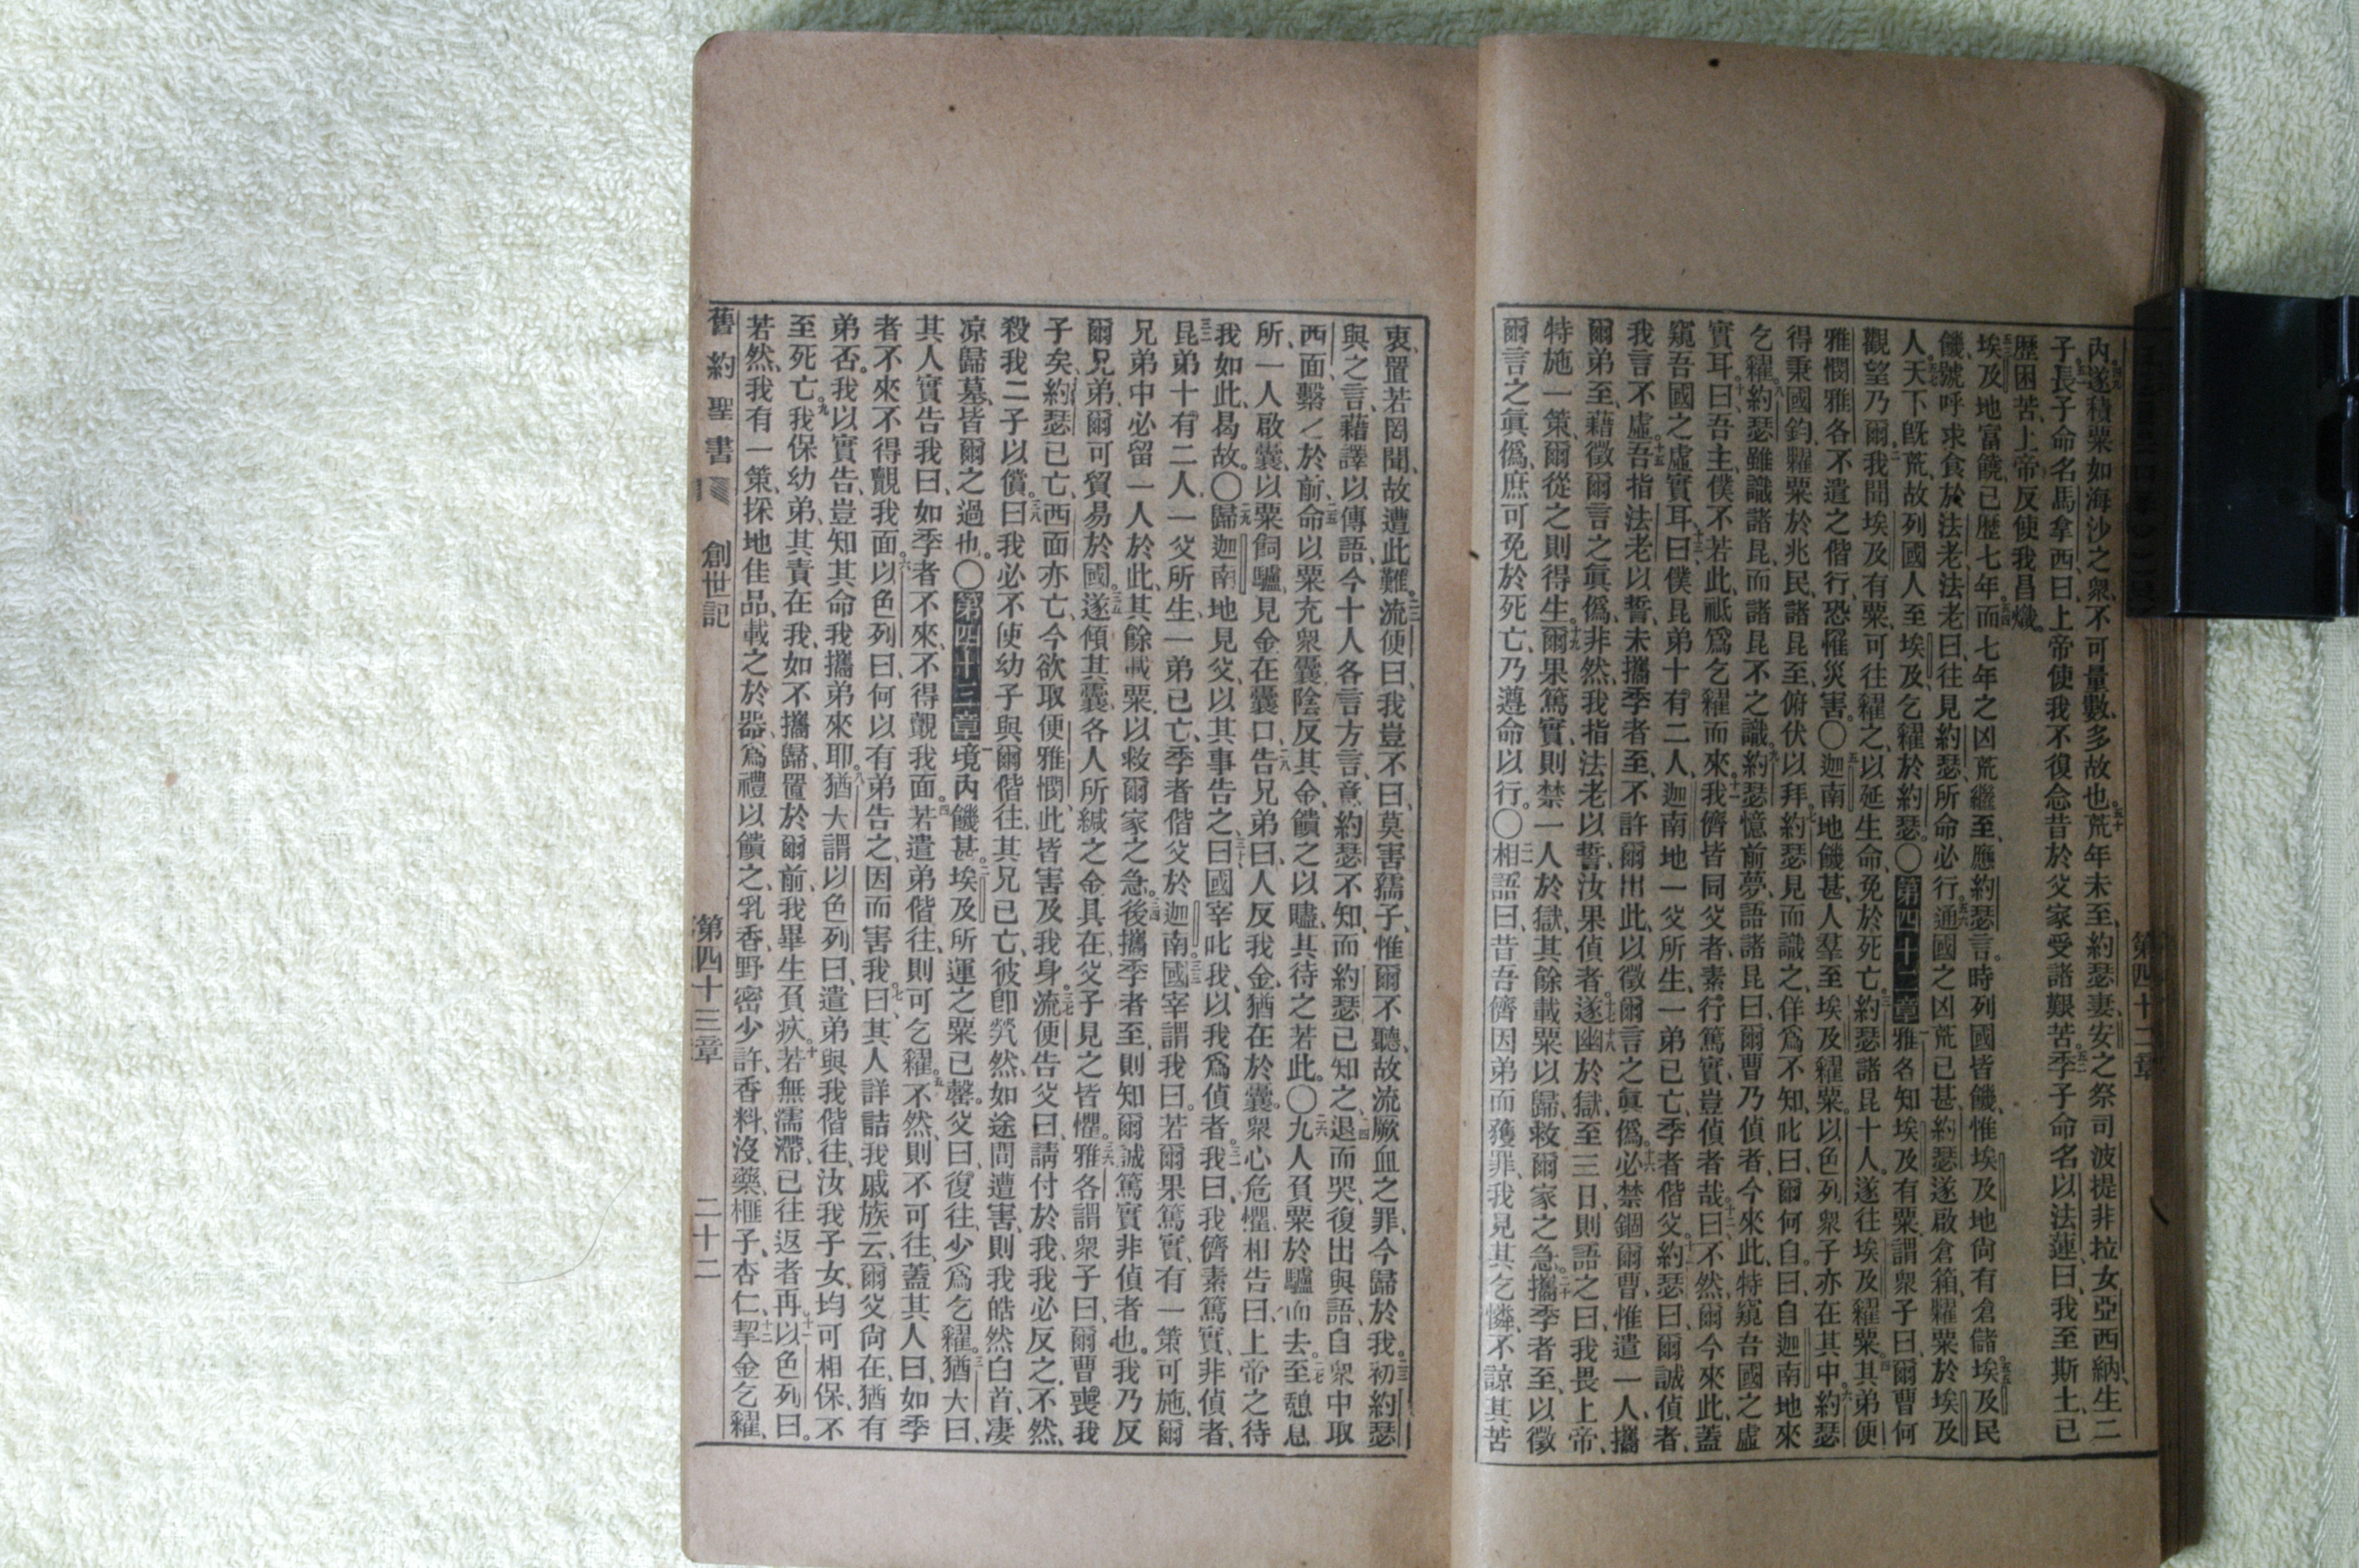 內、遂積粟如海沙之衆、不可量數、多故也。荒年未至、約瑟妻、安之祭司波提非拉女亞西納、生二
子、長子命名馬拿西、曰、上帝使我不復念昔於父家受諸艱苦。季子命名以法蓮、曰、我至斯土、已
歷困苦、上帝反使我昌熾。
埃及地富饒、已歷七年。而七年之凶荒繼至、應約瑟言。時列國皆饑、惟埃及地尙有倉儲。埃及民
饑、號呼求食於法老、法老曰、往見約瑟、所命必行。通國之凶荒已甚、約瑟遂啟倉箱、糶粟於埃及
人。天下旣荒、故列國人至埃及、乞糴於約瑟。〇第四十二章 雅各知埃及有粟、謂衆子曰、爾曹何
觀望乃爾。我聞埃及有粟、可往糴之、以延生命、免於死亡。約瑟諸昆十人、遂往埃及糴粟。其弟便
雅憫、雅各不遣之偕行、恐罹災害。〇迦南地饑甚、人羣至埃及糴粟。以色列衆子亦在其中。約瑟
得秉國鈞、糶粟於兆民、諸昆至、俯伏以拜。約瑟見而識之、佯爲不知、叱曰、爾何自。曰、自迦南地來
乞糴。約瑟雖識諸昆、而諸昆不之識。約瑟憶前夢、語諸昆曰、爾曹乃偵者、今來此、特窺吾國之虛
實耳。曰、吾主、僕不若此、祇爲乞糴而來。我儕皆同父者、素行篤實、豈偵者哉。曰、不然、爾今來此、蓋
窺吾國之虛實耳。曰、僕昆弟十有二人、迦南地一父所生、一弟已亡、季者偕父。約瑟曰、爾誠偵者、
我言不虛。吾指法老以誓、未攜季者至、不許爾出此、以徵爾言之眞僞。必禁錮爾曹、惟遣一人、攜
爾弟至、藉徵爾言之眞僞、非然、我指法老以誓、汝果偵者。遂幽於獄、至三日、則語之曰、我畏上帝、
特施一策、爾從之則得生。爾果篤實、則禁一人於獄、其餘載粟以歸、救爾家之急。攜季者至、以徵
爾言之眞僞、庶可免於死亡、乃遵命以行。〇相語曰、昔吾儕因弟而獲罪、我見其乞憐、不諒其苦
衷、置若罔聞、故遭此難。流便曰、我豈不曰、莫害孺子、惟爾不聽、故流厥血之罪、今歸於我。初約瑟
與之言、藉譯以傳語、今十人各言方言、意約瑟不知、而約瑟已知之、退而哭、復出與語、自衆中取
西面、繫之於前、命以粟充衆囊、陰反其金、饋之以贐、其待之若此。〇九人負粟於驢而去。至憩息
所、一人啟囊、以粟飼驢、見金在囊口、告兄弟曰、人反我金、猶在於囊。衆心危懼、相告曰、上帝之待
我如此、曷故。〇歸迦南地見父、以其事告之、曰、國宰叱我、以我爲偵者。我曰、我儕素篤實、非偵者、
昆弟十有二人、一父所生、一弟已亡、季者偕父於迦南。國宰謂我曰。若爾果篤實、有一策可施、爾
兄弟中必留一人於此、其餘載粟、以救爾家之急。後攜季者至、則知爾誠篤實、非偵者也。我乃反
爾兄弟、爾可貿易於國。遂傾其囊、各人所緘之金具在、父子見之皆懼。雅各謂衆子曰、爾曹喪我
子矣、約瑟已亡、西面亦亡、今欲取便雅憫、此皆害及我身。流便告父曰、請付於我、我必反之、不然、
殺我二子以償。曰、我必不使幼子與爾偕往、其兄已亡、彼卽煢然、如途間遭害、則我皓然白首、淒
凉歸墓、皆爾之過也。〇第四十三章 境內饑甚。埃及所運之粟已罄。父曰、復往、少爲乞糴。猶大曰、
其人實告我曰、如季者不來、不得覿我面。若遣弟偕往、則可乞糴。不然、則不可往、蓋其人曰、如季
者不來、不得覿我面。以色列曰、何以有弟告之、因而害我。曰、其人詳詰我戚族、云、爾父尙在、猶有
弟否。我以實告、豈知其命我攜弟來耶。猶大謂以色列曰、遣弟與我偕往、汝我子女、均可相保、不
至死亡。我保幼弟、其責在我、如不攜歸、置於爾前、我畢生負疚。若無濡滯、已往返者再。以色列曰。
若然、我有一策、採地佳品、載之於器、爲禮以饋之、乳香、野密少許、香料、沒藥、榧子、杏仁、挈金乞糴、
舊約聖書 創世記 第四十三章 二十二